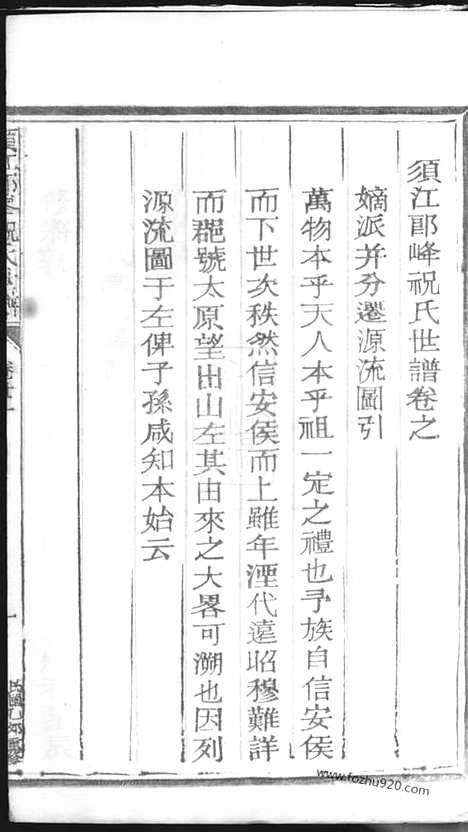 須江郎峰祝氏世譜卷之
嫡派并分遷源流圖引
萬物本乎天人本乎祖一定之禮也予族自信安侯
而下世次秩然信安侯而上雖年湮代遠昭穆難詳
而郡號太原望出山左其由來之大畧可溯也因列
源流圖于左俾子孫咸知本始云
www.fozhu920.com